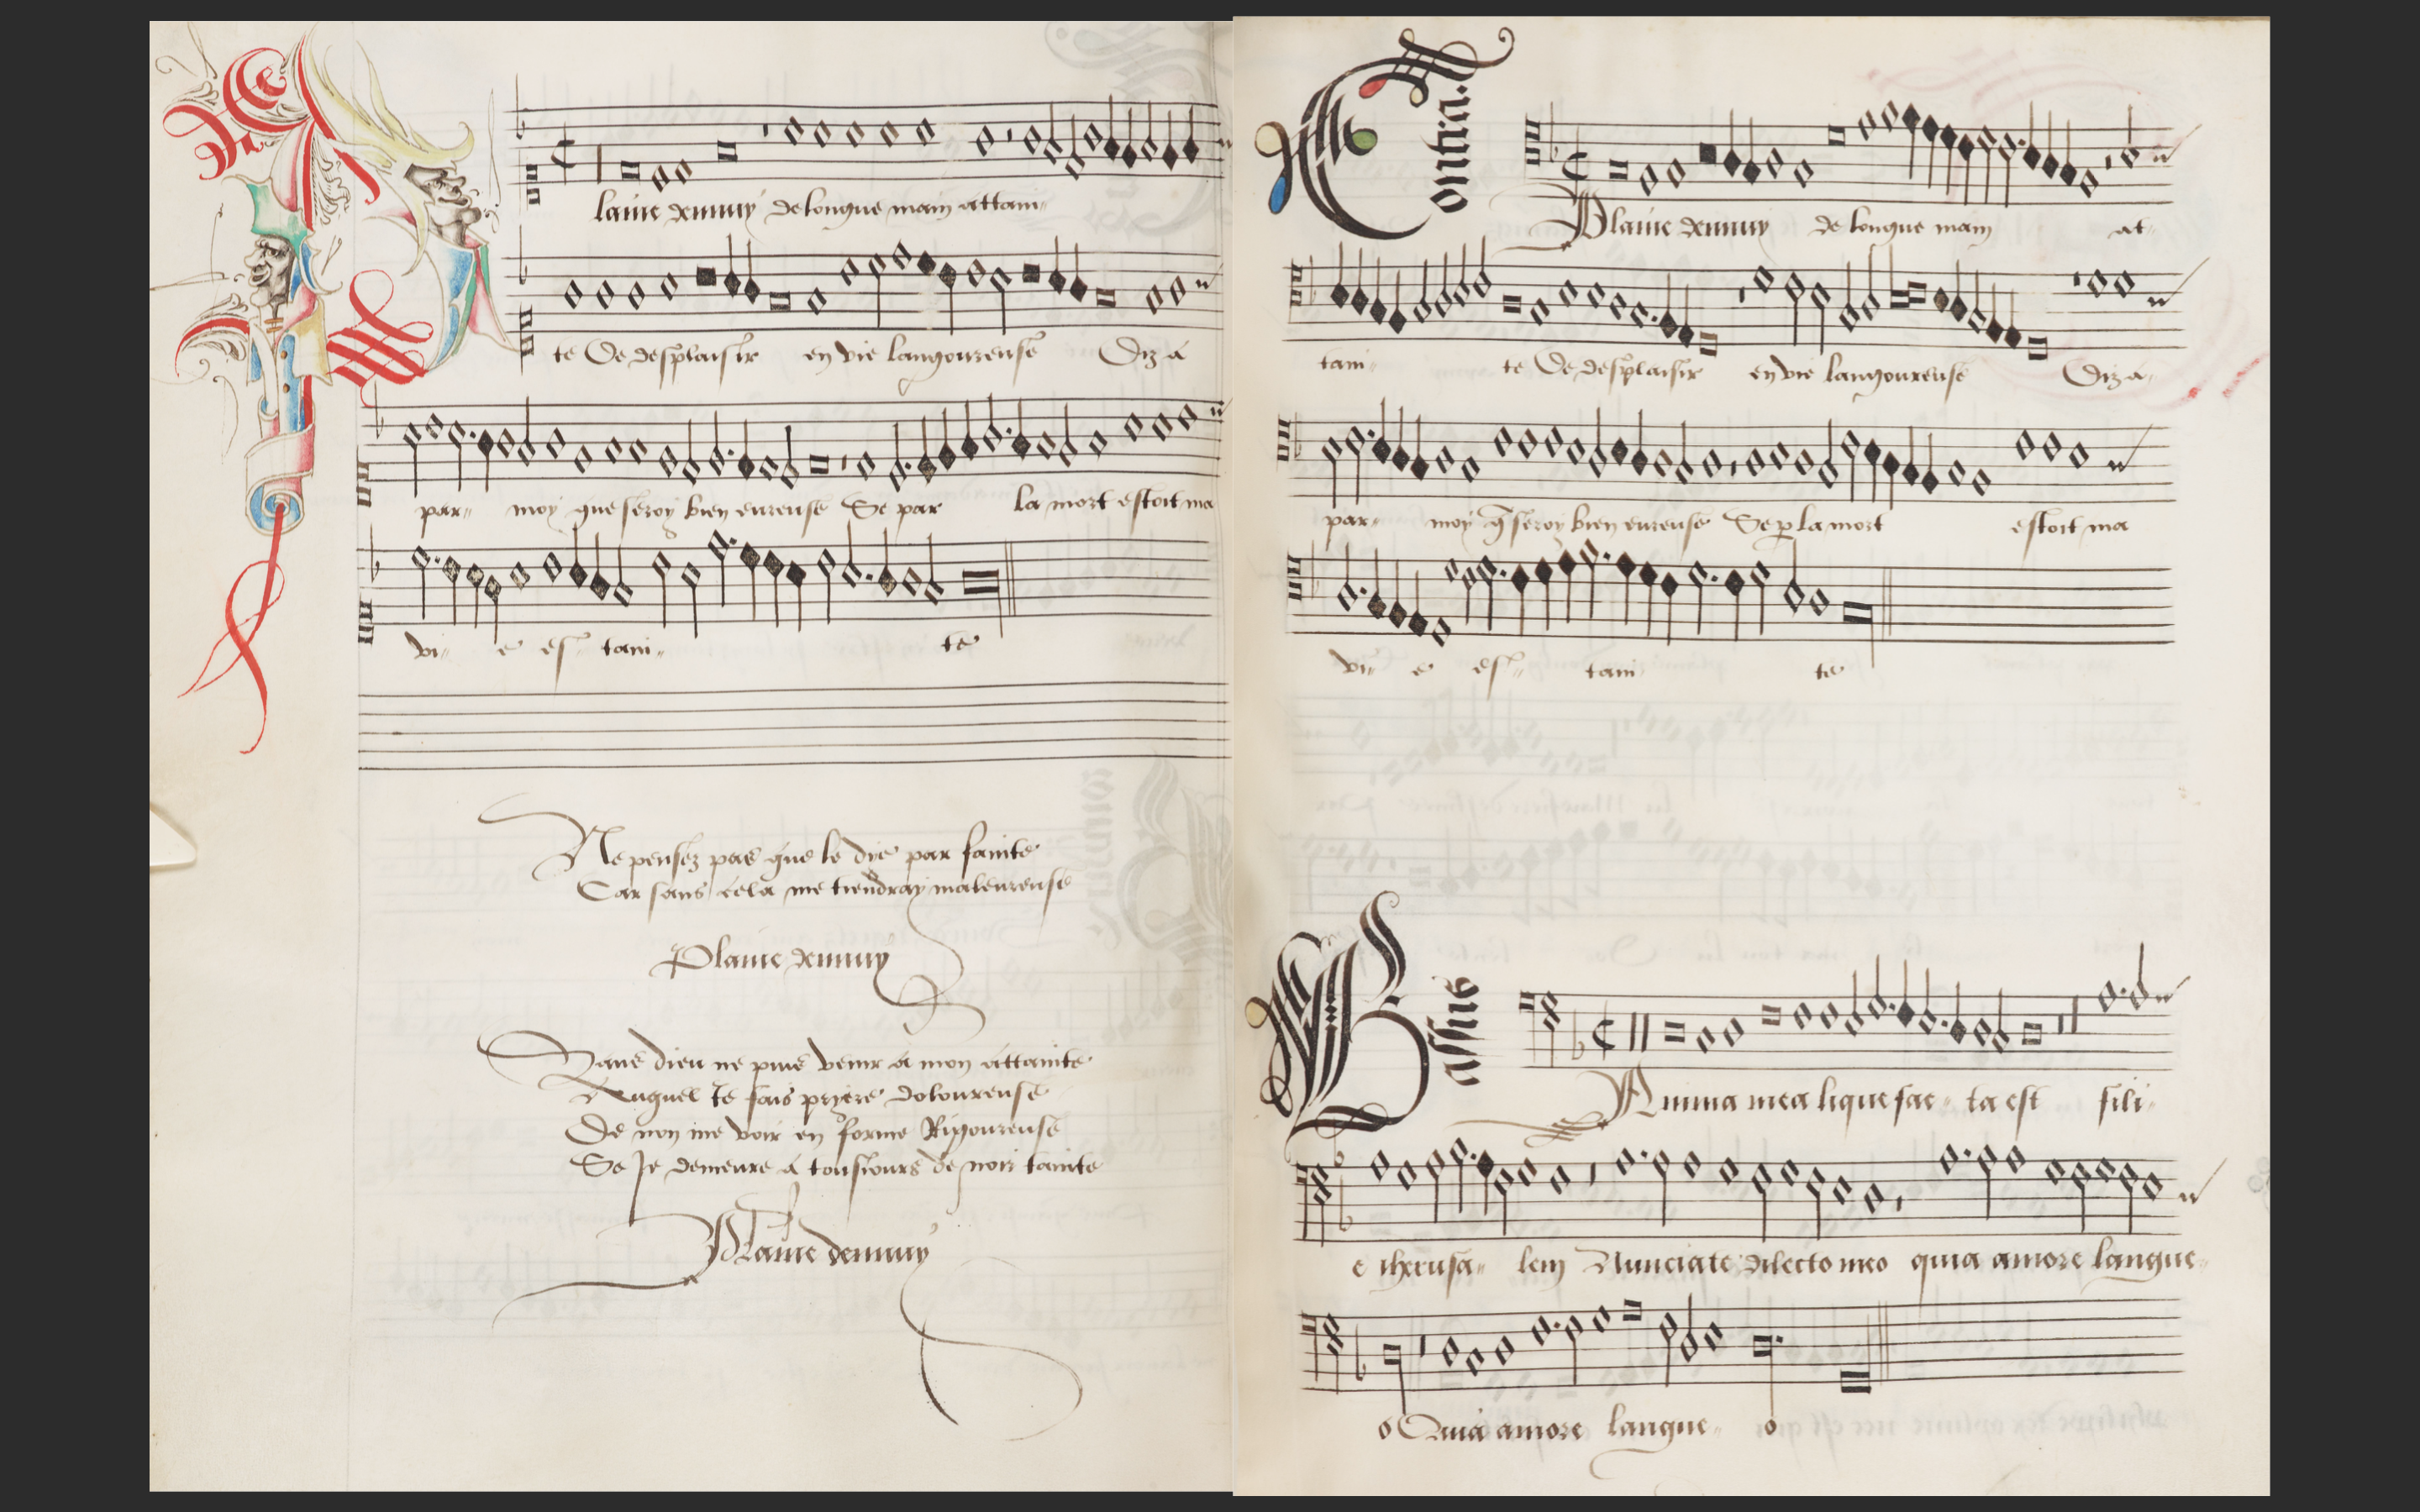 Plaine dennuy de longue main attain-
te De desplaisir en vie langoureuse Diz a
par- moy que seroy bien eureuse Se par la mort estoit ma
vi- e es- tain- te
Ne pensez pas que le die par fainte
Car sans cela me tiendray maleureuse
Plaine dennuy
Sans dieu ne puis venir a mon attainte
Auquel te fais pryere doloureuse
De non me voir en forme Rigoureuse
Se Je demeure a tousiours de noir tainte
Plaine dennuy
Contra.
Plaine dennuy de longue main at-
tain- te De desplaisir en vie langoureuse Diz a-
par- moy q̃ seroy bien eureuse Se p la mort estoit ma
vi- e es- tain te
Bassus
Anima mea liquefac- ta est filii-
e iherusa- lem Nunciate dilecto meo quia amore langue-
o Quia amore langue- o